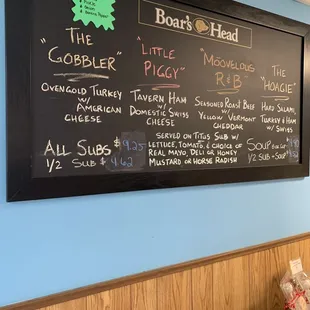 Boar's Head
"The Gobbler"
Ovengold Turkey
w/
American
Cheese
"Little Piggy"
Tavern Ham
w/
Domestic Swiss
Cheese
"Moovelous R&B"
Seasoned Roast Beef
w/
Yellow Vermont
Cheddar
"The Hoagie"
Hard Salami,
Turkey & Ham
w/ Swiss
All Subs $9.25
1/2 Sub $4.62
Served on Titus Sub w/
Lettuce, Tomato, & Choice of
Real Mayo, Deli or Honey
Mustard or Horse Radish
Soup
1/2 Sub + Soup